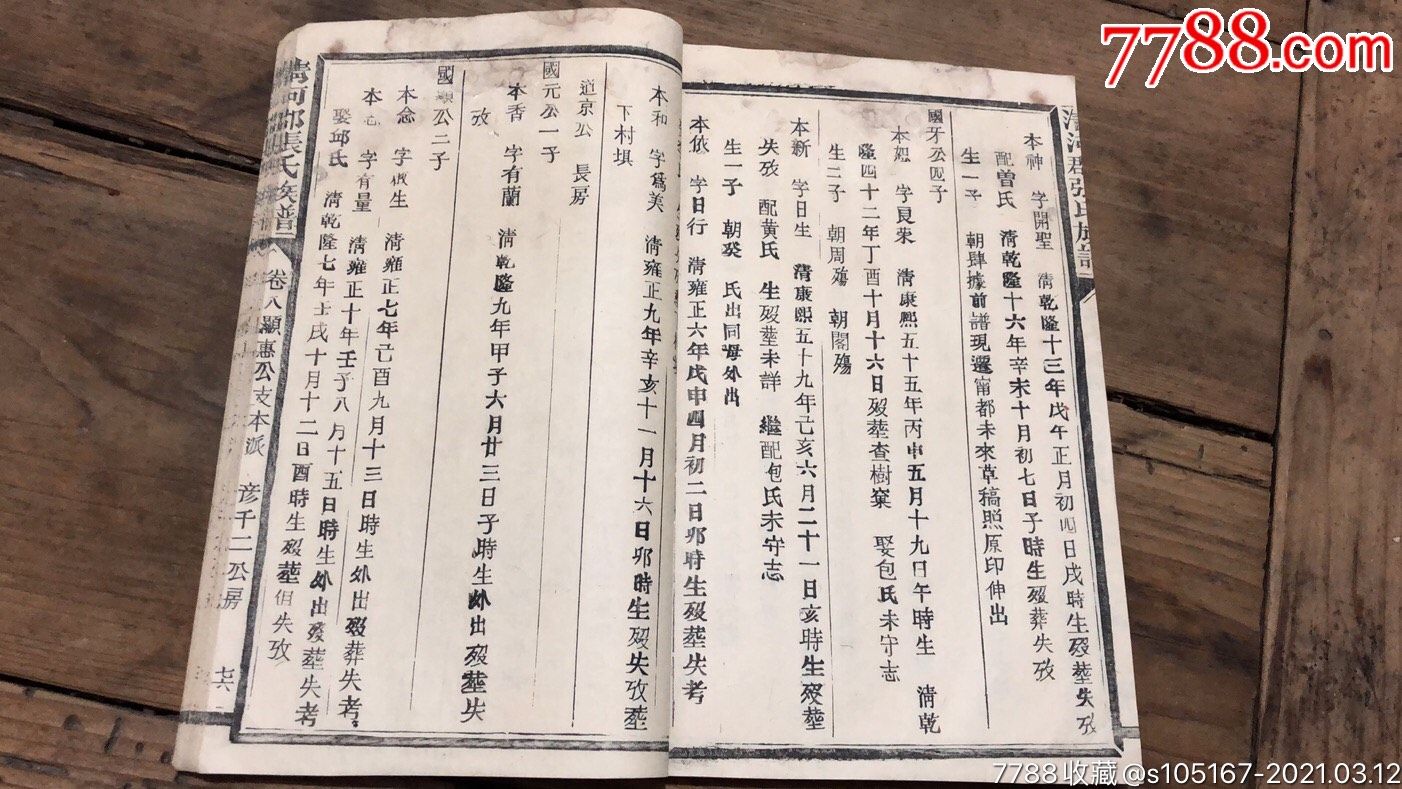 7788.com
本神 字開聖 清乾隆十三年戊午正月初四日戌時生歿塟失攷
配曽氏 清乾隆十六年辛未十月初七日子時生歿葬失攷
生一子 朝肆據前譜現遷甯都未來草稿照原印伸出
國牙公四子
本恕 字良荣 清康熙五十五年丙申五月十九日午時生 清乾
隆四十二年丁酉十月十六日歿塟查樹窠 娶包氏未守志
生二子 朝周殤 朝閣殤
本新 字日生 清康熙五十九年己亥六月二十一日亥時生歿塟
失攷 配黄氏 生歿塟未詳 繼配包氏未守志
生一子 朝癸 氏出同母外出
本依 字日行 清雍正六年戊申四月初二日卯時生歿塟失考
本和 字爲美 清雍正九年辛亥十一月十六日卯時生歿失攷塟
下村塡
道京公 長房
國元公一子
本香 字有蘭 清乾隆九年甲子六月廿三日子時生外出歿塟失
攷
國 公二子
本念 字 生 清雍正七年己酉九月十三日時生外出歿葬失考
本 字有量 清雍正十年壬子八月十五日時生外出歿塟失考
娶邱氏 清乾隆七年壬戌十月十二日酉時生歿塟俱失攷
清河郡張氏族譜 卷八顯惠公支本派 彦千二公房
清河郡張氏族譜
7788收藏@s105167-2021.03.12